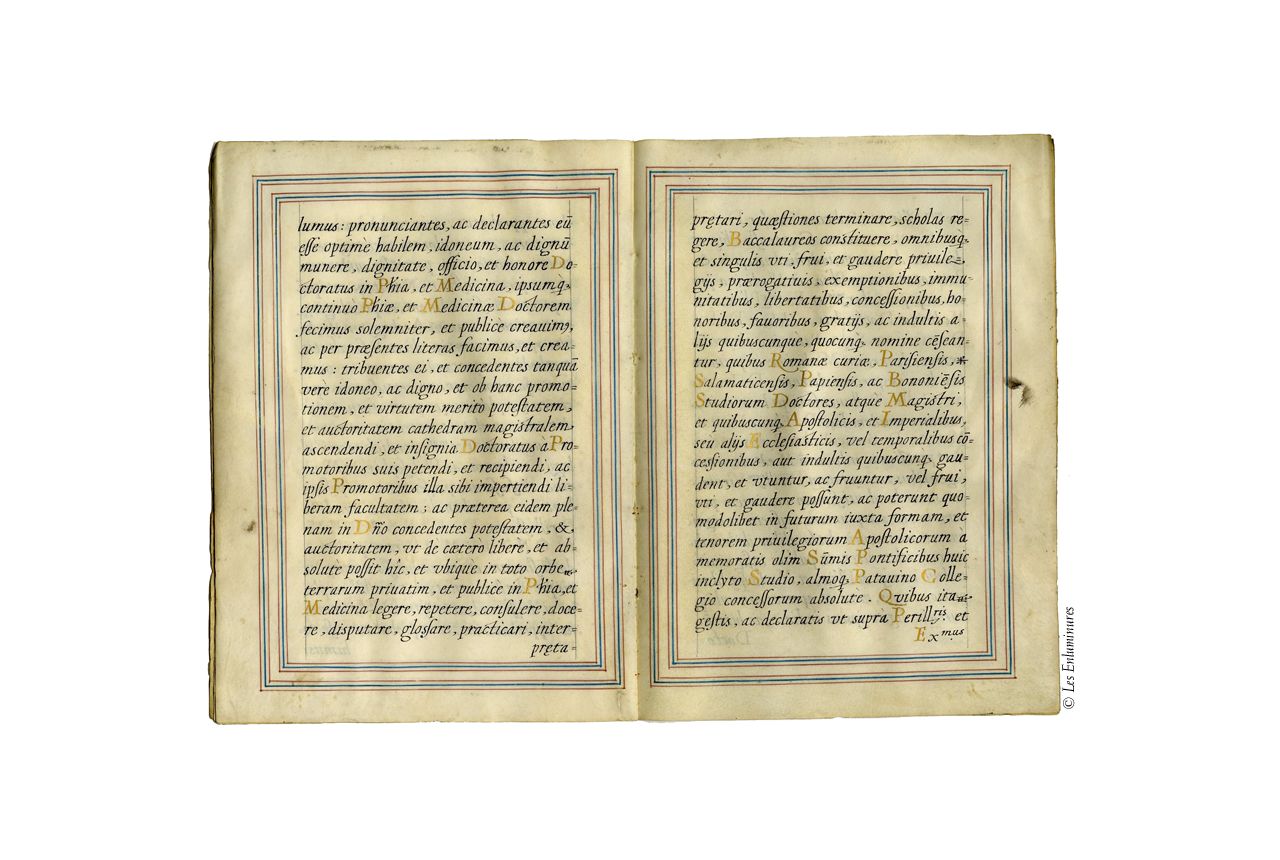 lumus: pronunciantes, ac declarantes eū
esse optimè habilem, idoneum, ac dignū
munere, dignitate, officio, et honore Do=
ctoratus in Phia, et Medicina, ipsumq́;
continuò Phiæ, et Medicinæ Doctorem
fecimus solemniter, et publicè creauimꝰ,
ac per præsentes literas facimus, et crea=
mus: tribuentes ei, et concedentes tanquā
verè idoneo, ac digno, et ob hanc promo=
tionem, et virtutem merito potestatem,
et auctoritatem cathedram magistralem
ascendendi, et insignia Doctoratus à Pro=
motoribus suis petendi, et recipiendi, ac
ipsis Promotoribus illa sibi impertiendi li=
beram facultatem; ac præterea eidem ple=
nam in Dño concedentes potestatem, &
auctoritatem, vt de cæterò liberè, et ab=
solute possit hîc, et vbique in toto orbe
terrarum priuatim, et publicè in Phia, et
Medicina legere, repetere, consulere, doce=
re, disputare, glossare, practicari, inter=
pręta=
prętari, quæstiones terminare, scholas re=
gere, Baccalaureos constituere, omnibusq́;
et singulis vti, frui, et gaudere priuile=
gijs, prærogatiuis, exemptionibus, immu=
nitatibus, libertatibus, concessionibus, ho=
noribus, fauoribus, gratijs, ac indultis a=
lijs quibuscunquè, quocunq́; nomine cēsean=
tur, quibus Romanæ curiæ, Parisiensis,
Salamaticensis, Papiensis, ac Bononiēsis
Studiorum Doctores, atque Magistri,
et quibuscunq́; Apostolicis, et Imperialibus,
seu alijs Ecclesiasticis, vel temporalibus cō=
cessionibus, aut indultis quibuscunq́; gau=
dent, et vtuntur, ac fruuntur, vel frui,
vti, et gaudere possunt, ac poterunt quo=
modolibet in futurum iuxta formam, et
tenorem priuilegiorum Apostolicorum à
memoratis olim Sūmis Pontificibus huic
inclyto Studio, almoq́; Patauino Colle=
gio concessorum absolute. Quibus ita
gestis, ac declaratis vt supra Perill<sup>ris</sup> et
Ex<sup>mus</sup>
© Les Enluminures